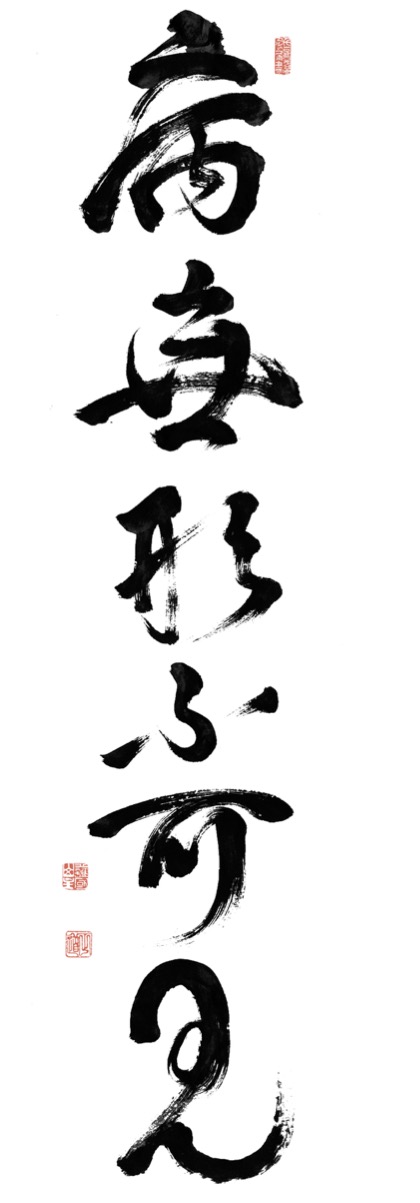 病無形不可見